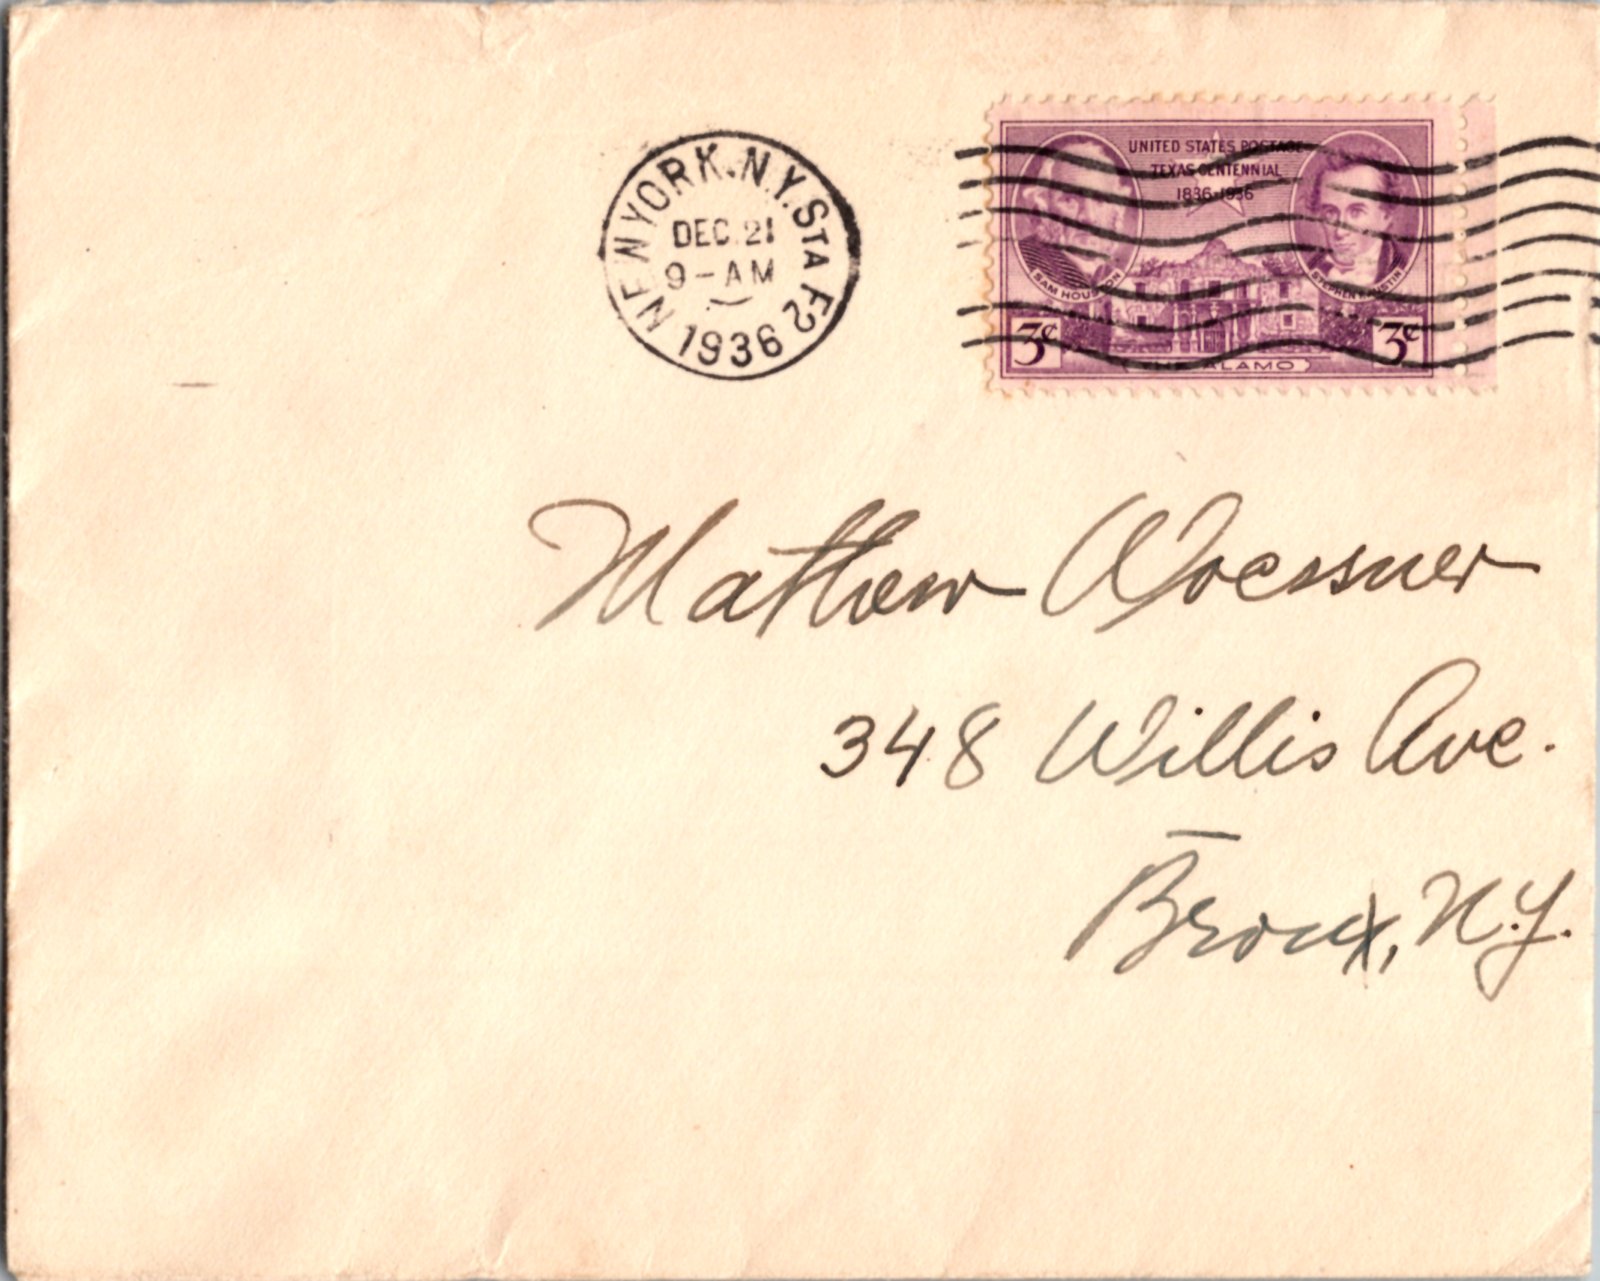 NEW YORK, N.Y. STA F2
DEC 21
9-AM
1936
UNITED STATES POSTAGE
TEXAS CENTENNIAL
1836-1936
SAM HOUSTON
STEPHEN F. AUSTIN
3¢
3¢
THE ALAMO
Mathew Woessner
348 Willis Ave.
Bronx, N.Y.